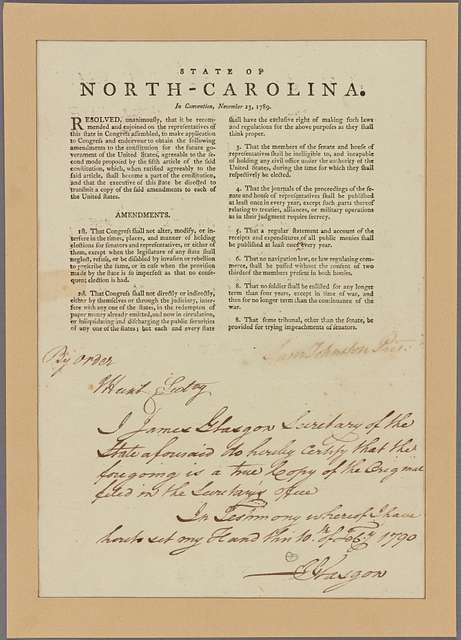 STATE OF
NORTH-CAROLINA.
In Convention, November 23, 1789.
RESOLVED, unanimously, that it be recom-
mended and enjoined on the representatives of
this state in Congress assembled, to make application
to Congress and endeavour to obtain the following
amendments to the constitution for the future go-
vernment of the United States, agreeable to the se-
cond mode proposed by the fifth article of the said
constitution, which, when ratified agreeably to the
said article, shall become a part of the constitution,
and that the executive of this state be directed to
transmit a copy of the said amendments to each of
the United States.
AMENDMENTS.
1st. That Congress shall not alter, modify, or in-
terfere in the times, places, and manner of holding
elections for senators and representatives, or either of
them, except when the legislature of any state shall
neglect, refuse, or be disabled by invasion or rebellion
to prescribe the same, or in case when the provision
made by the state is so imperfect as that no conse-
quent election is had.
2d. That Congress shall not directly or indirectly,
either by themselves or through the judiciary, inter-
fere with any one of the states, in the redemption of
paper money already emitted, and now in circulation,
or in liquidating and discharging the public securities
of any one of the states; but each and every state
shall have the exclusive right of making such laws
and regulations for the above purposes as they shall
think proper.
3. That the members of the senate and house of
representatives shall be ineligible to, and incapable
of holding any civil office under the authority of the
United States, during the time for which they shall
respectively be elected.
4. That the journals of the proceedings of the se-
nate and house of representatives shall be published
at least once in every year, except such parts thereof
relating to treaties, alliances, or military operations
as in their judgment require secrecy.
5. That a regular statement and account of the
receipts and expenditures of all public monies shall
be published at least once in every year.
6. That no navigation law, or law regulating com-
merce, shall be passed without the consent of two
thirds of the members present in both houses.
8. That no soldier shall be enlisted for any longer
term than four years, except in time of war, and
then for no longer term than the continuance of the
war.
8. That some tribunal, other than the senate, be
provided for trying impeachments of senators.
Sam Johnston Pres.
By order
J Hunt Secty
I James Glasgow Secretary of the
State aforesaid do hereby Certify that the
foregoing is a true Copy of the Original
filed in the Secretary's office
In Testimony whereof I have
hereto set my Hand this 10th of Feby 1790
J Glasgow